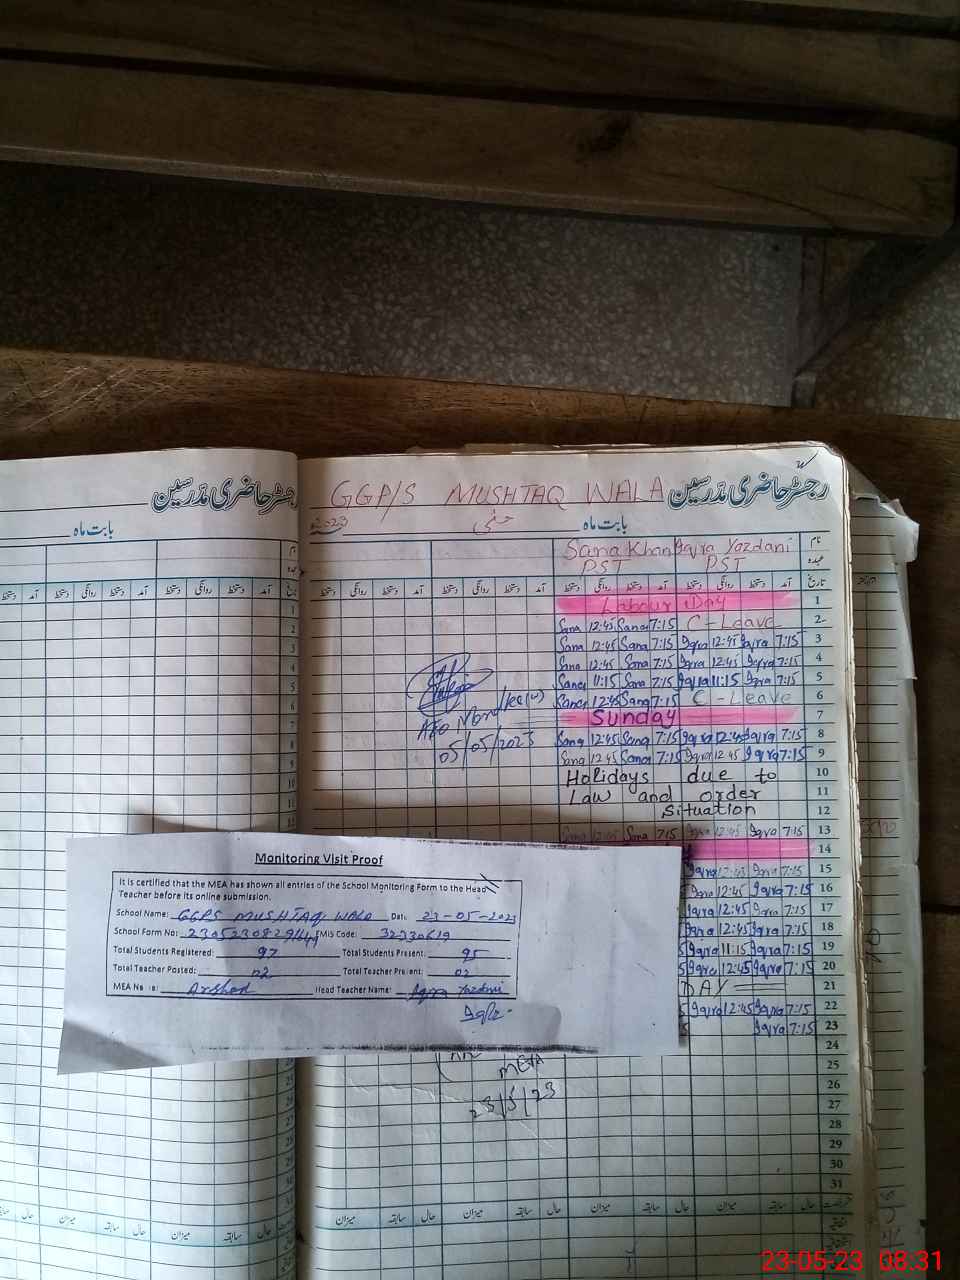 رجسٹر حاضری مدرسین
بابت ماہ
نام
عہدہ
تاریخ آمد دستخط روانگی دستخط آمد دستخط روانگی دستخط آمد
1
2
3
4
5
6
7
8
9
10
11
GGP/S MUSHTAQ WALA رجسٹر حاضری مدرسین
2023 مئی بابت ماہ
Sana Khan Iqra Yazdani نام
PST PST عہدہ
دستخط روانگی دستخط آمد دستخط روانگی دستخط آمد دستخط روانگی دستخط آمد دستخط روانگی دستخط آمد تاریخ
Labour Day 1
Sana 12:45 Sana 7:15 C-Leave 2
Sana 12:45 Sana 7:15 Iqra 12:45 Iqra 7:15 3
Sana 12:45 Sana 7:15 Iqra 12:45 Iqra 7:15 4
Sana 11:15 Sana 7:15 Iqra 11:15 Iqra 7:15 5
Sana 12:45 Sana 7:15 C-Leave 6
Sunday 7
Sana 12:45 Sana 7:15 Iqra 12:45 Iqra 7:15 8
Sana 12:45 Sana 7:15 Iqra 12:45 Iqra 7:15 9
AEO
05/05/2023
Holidays due to 10
Law and order 11
Situation 12
Sana 12:45 Sana 7:15 Iqra 12:45 Iqra 7:15 13
14
Iqra 12:45 Iqra 7:15 15
Iqra 12:45 Iqra 7:15 16
Iqra 12:45 Iqra 7:15 17
Iqra 12:45 Iqra 7:15 18
Iqra 11:15 Iqra 7:15 19
Iqra 12:45 Iqra 7:15 20
DAY 21
Iqra 12:45 Iqra 7:15 22
Iqra 7:15 23
24
25
26
27
28
29
30
31
Monitoring Visit Proof
It is certified that the MEA has shown all entries of the School Monitoring Form to the Head
Teacher before its online submission.
School Name: GGPS MUSHTAQ WALA Date: 23-05-2023
School Form No: EMIS Code: 32330619
Total Students Registered: 97 Total Students Present: 95
Total Teacher Posted: 02 Total Teacher Present: 02
MEA Name: Arshad Head Teacher Name: Iqra Yazdani
Iqra
MEA
23/5/23
میزان سابقہ حال میزان سابقہ حال میزان سابقہ حال میزان سابقہ حال
23-05-23 08:31